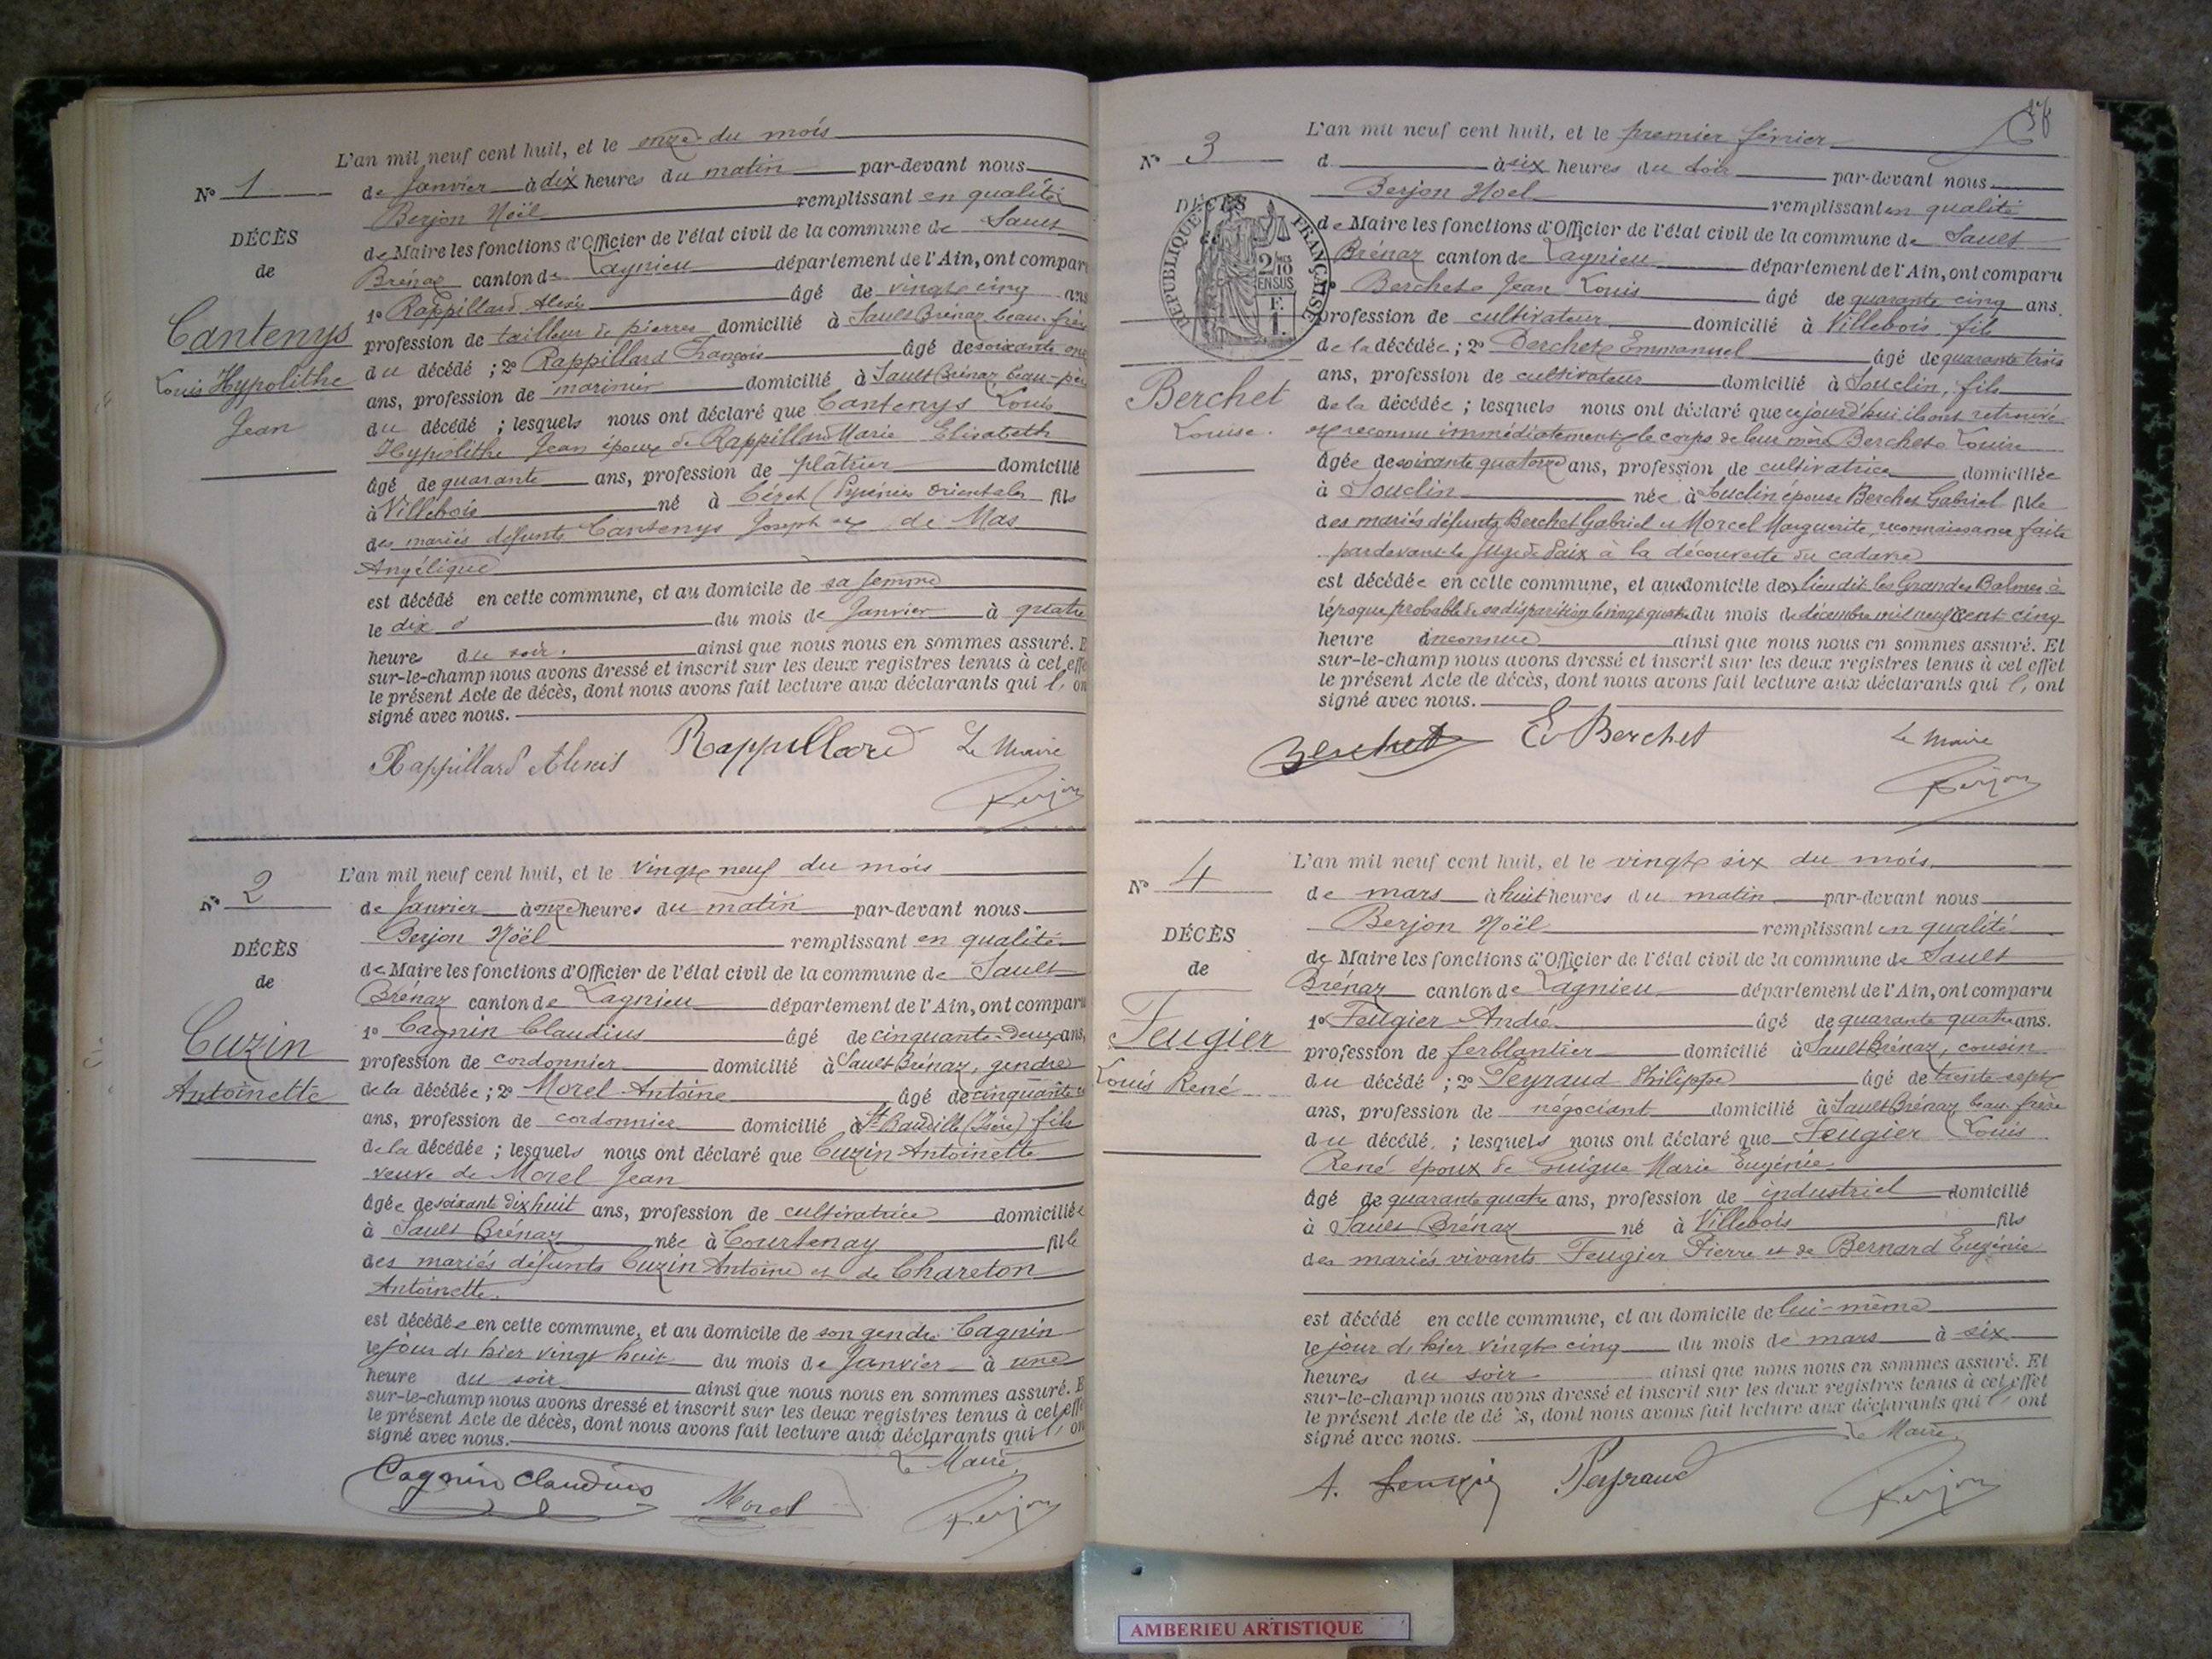 L'an mil neuf cent huit, et le onze du mois
N° 1
de Janvier à dix heures du matin par-devant nous
Berjon Noël remplissant en qualité
DÉCÈS
de
Cantenys
Louis Hypolithe
Jean
de Maire les fonctions d'Officier de l'état civil de la commune de Sault
Brénaz canton de Lagnieu département de l'Ain, ont comparu
1° Rappillard Alexis âgé de vingt cinq ans
profession de tailleur de pierres domicilié à Sault Brénaz, beau-frère
du décédé ; 2° Rappillard François âgé de soixante
ans, profession de marinier domicilié à Sault Brénaz, beau-père
du décédé ; lesquels nous ont déclaré que Cantenys Louis
Hypolithe Jean époux de Rappillard Marie Elisabeth
âgé de quarante ans, profession de plâtrier domicilié
à Villebois né à Céret (Pyrénées Orientales fils
des mariés défunts Cantenys Joseph et de Mas
Angélique
est décédé en cette commune, et au domicile de sa femme
le dix du mois de Janvier à quatre
heures du soir. ainsi que nous nous en sommes assuré. E
sur-le-champ nous avons dressé et inscrit sur les deux registres tenus à cet effe
le présent Acte de décès, dont nous avons fait lecture aux déclarants qui l, on
signé avec nous.
Rappillard Alexis Rappillard Le Maire
Berjon
L'an mil neuf cent huit, et le vingt neuf du mois
N° 2
de Janvier à onze heures du matin par-devant nous
Berjon Noël remplissant en qualité
DÉCÈS
de
Cuzin
Antoinette
de Maire les fonctions d'Officier de l'état civil de la commune de Sault
Brénaz canton de Lagnieu département de l'Ain, ont comparu
1° Cagnin Claudius âgé de cinquante-deux ans,
profession de cordonnier domicilié à Sault Brénaz, gendre
de la décédée ; 2° Morel Antoine âgé de cinquante
ans, profession de cordonnier domicilié à St Baudille (Isère) fils
de la décédée ; lesquels nous ont déclaré que Cuzin Antoinette
veuve de Morel Jean
âgée de soixante dix huit ans, profession de cultivatrice domiciliée
à Sault Brénaz née à Courtenay fille
des mariés défunts Cuzin Antoine et de Chareton
Antoinette.
est décédée en cette commune, et au domicile de son gendre Cagnin
le jour d'hier vingt huit du mois de Janvier à une
heure du soir ainsi que nous nous en sommes assuré. E
sur-le-champ nous avons dressé et inscrit sur les deux registres tenus à cet effe
le présent Acte de décès, dont nous avons fait lecture aux déclarants qui l, on
signé avec nous.
Le Maire,
Cagnin Claudius Morel Berjon
L'an mil neuf cent huit, et le premier février
N° 3
d à six heures du soir par-devant nous
Berjon Noel remplissant en qualité
DÉCÈS
RÉPUBLIQUE FRANÇAISE
2/10 EN SUS
F.
1.
Berchet
Louise.
de Maire les fonctions d'Officier de l'état civil de la commune de Sault
Brénaz canton de Lagnieu département de l'Ain, ont comparu
Berchet Jean Louis âgé de quarante cinq ans.
profession de cultivateur domicilié à Villebois, fils
de la décédée ; 2° Berchet Emmanuel âgé de quarante trois
ans, profession de cultivateur domicilié à Souclin, fils
de la décédée ; lesquels nous ont déclaré que ce jourd'hui ils ont retrouvé
et reconnu immédiatement le corps de leur mère Berchet Louise
âgée de soixante quatorze ans, profession de cultivatrice domiciliée
à Souclin née à Souclin épouse Berchet Gabriel fille
des mariés défunts Berchet Gabriel et Morcel Marguerite, reconnaissance faite
pardevant le Juge de Paix à la découverte du cadavre
est décédée en cette commune, et au domicile de lieu dit les Grandes Balmes à
l'époque probable de sa disparition le vingt quatre du mois de décembre mil neuf cent cinq
heure inconnue ainsi que nous nous en sommes assuré. Et
sur-le-champ nous avons dressé et inscrit sur les deux registres tenus à cet effet
le présent Acte de décès, dont nous avons fait lecture aux déclarants qui l, ont
signé avec nous.
Berchet E Berchet Le Maire
Berjon
L'an mil neuf cent huit, et le vingt six du mois
N° 4
de mars à huit heures du matin par-devant nous
Berjon Noël remplissant en qualité
DÉCÈS
de
Feugier
Louis René
de Maire les fonctions d'Officier de l'état civil de la commune de Sault
Brénaz canton de Lagnieu département de l'Ain, ont comparu
1° Feugier André âgé de quarante quatre ans.
profession de ferblantier domicilié à Sault Brénaz, cousin
du décédé ; 2° Peyraud Philippe âgé de trente sept
ans, profession de négociant domicilié à Sault Brénaz beau-frère
du décédé, ; lesquels nous ont déclaré que Feugier Louis
René époux de Guigue Marie Eugénie
âgé de quarante quatre ans, profession de industriel domicilié
à Sault Brénaz né à Villebois fils
des mariés vivants Feugier Pierre et de Bernard Eugénie
est décédé en cette commune, et au domicile de lui-même
le jour d'hier vingt cinq du mois de mars à six
heures du soir ainsi que nous nous en sommes assuré. Et
sur-le-champ nous avons dressé et inscrit sur les deux registres tenus à cet effet
le présent Acte de décès, dont nous avons fait lecture aux déclarants qui l, ont
signé avec nous. Le Maire,
A. Feugier Peyraud Berjon
AMBERIEU ARTISTIQUE